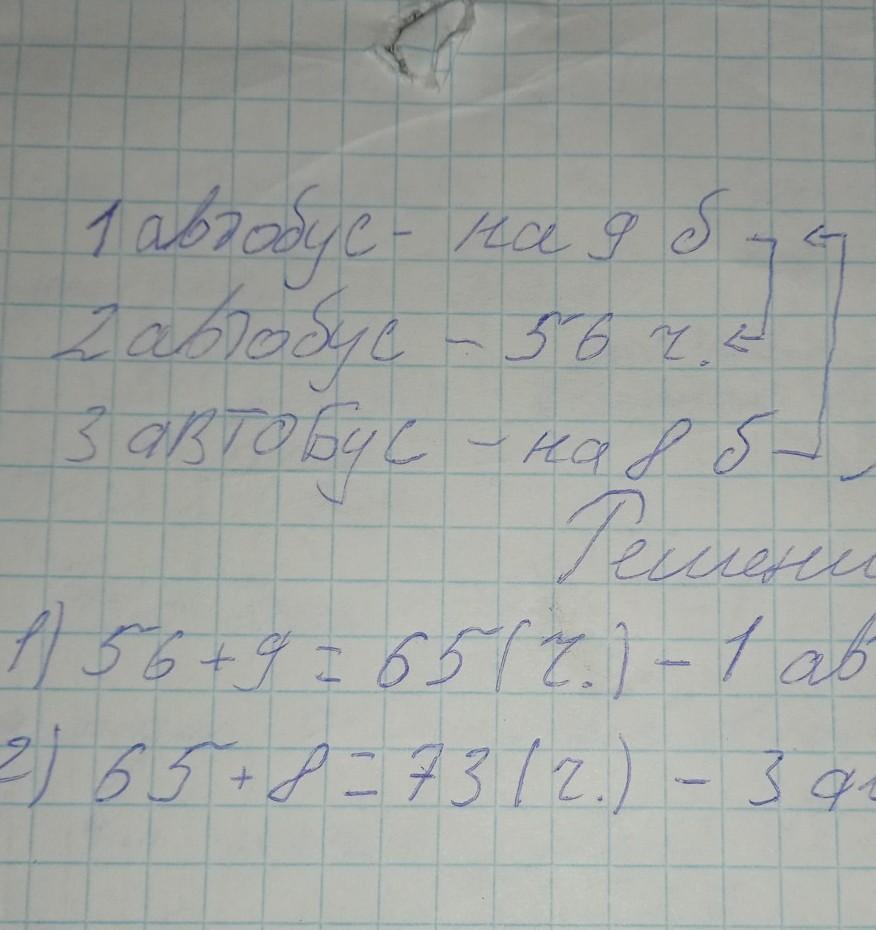 1 автобус - на 9 б
2 автобус - 56 ч.
3 автобус - на 8 б
Решени
1) 56 + 9 = 65 (ч.) - 1 ав
2) 65 + 8 = 73 (ч.) - 3 ав